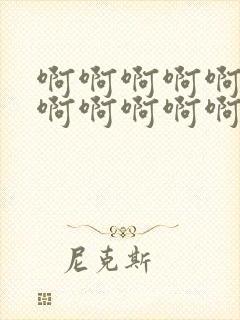 啊啊啊啊啊
啊啊啊啊啊
尼克斯